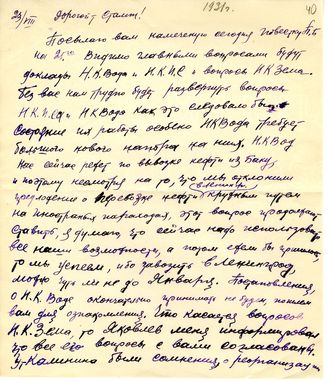 1931г.
40
23/VIII Дорогой Сталин!
Посылаю вам намеченную сегодня повестку П.Б.
на 25го Видимо главными вопросами будут
доклады НКВода и Н.К.П.С и вопросы НКЗема.
Без вас нам трудно будет развернуть вопросы
Н.К.П.С. и НКВода как это следовало бы.
состояние их работы особенно НКВода требует
большого нового напора на них. НКВод
нас сейчас режет по вывозке нефти из Баку,
и поэтому несмотря на то, что мы отклонили
предложение о перевозке нефти в Ленинград кружным путем
на иностранных пароходах, этот вопрос продолжают
ставить, я думаю, что сейчас надо использовать
все наши возможности, а потом если бы
то мы успеем, ибо завозить в Ленинград
можно чуть ли не до Января. Постановления
о Н.К.Воде окончательно принимать не будем, пошлем
вам для ознакомления. Что касается вопросов
Н.К.Зема, то Яковлев меня информировал
что все его вопросы с вами согласованы.
У т. Калинина были сомнения о реорганизации